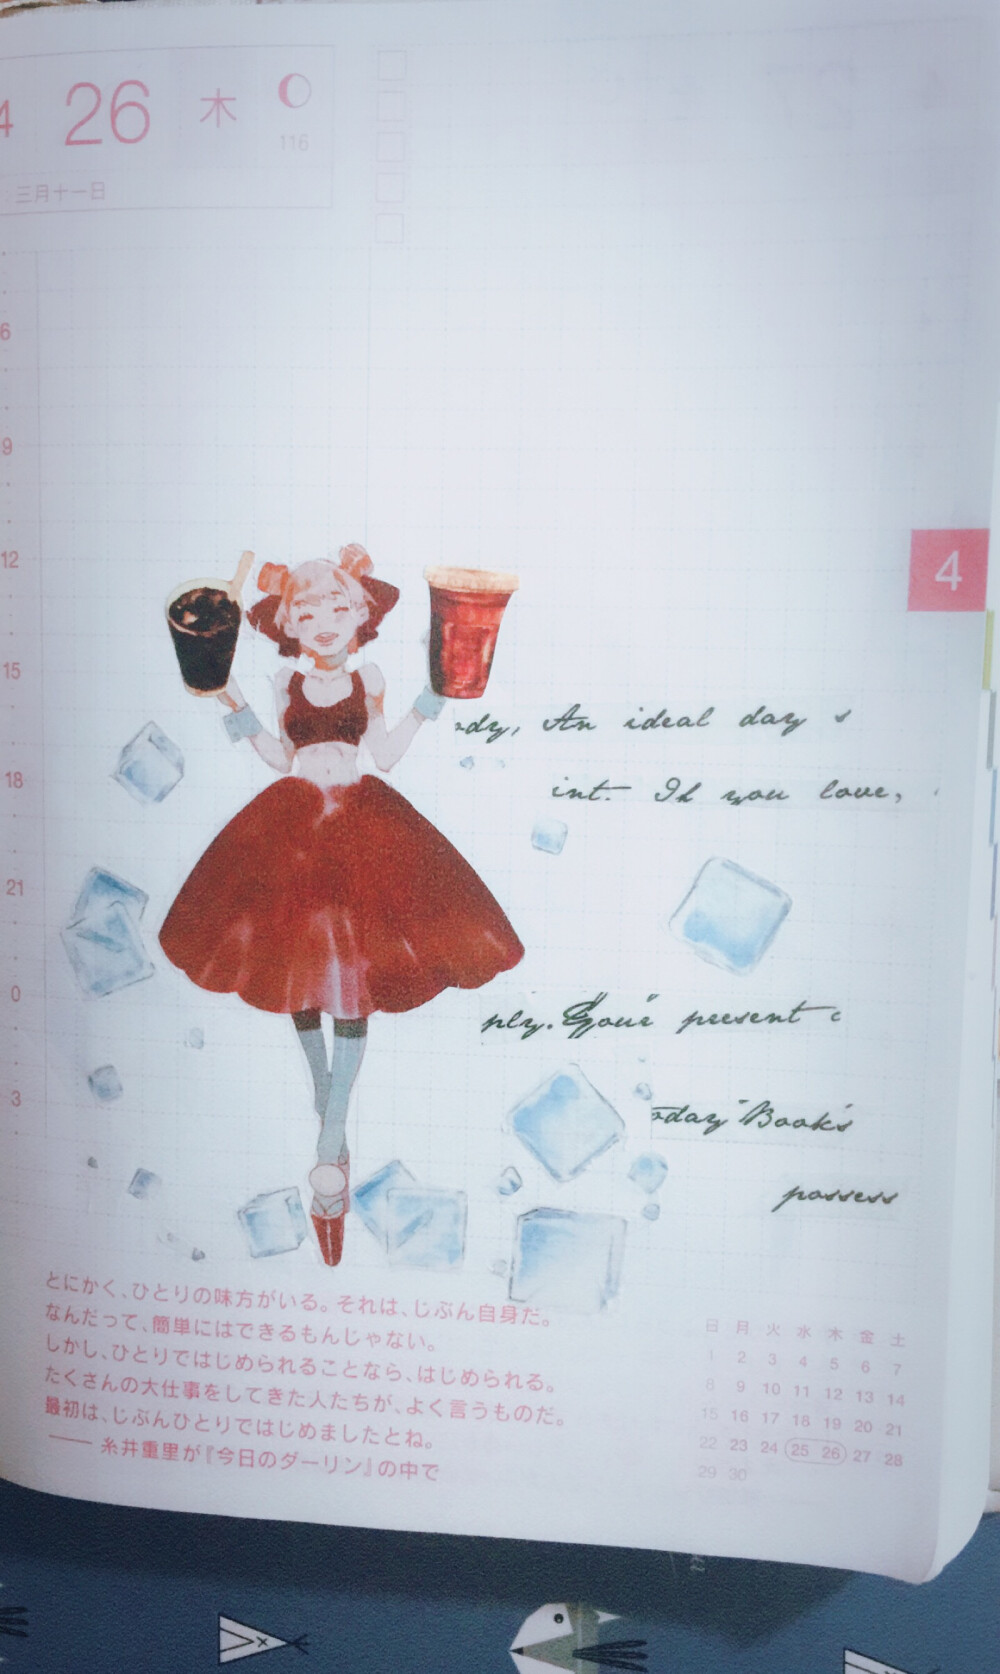 4 26 木
116
三月十一日
6
9
12
4
15
ody, An ideal day s
18
int. If you love,
21
0
ply. Your present c
3
oday Book's
possess
とにかく、ひとりの味方がいる。それは、じぶん自身だ。
なんだって、簡単にはできるもんじゃない。
しかし、ひとりではじめられることなら、はじめられる。
たくさんの大仕事をしてきた人たちが、よく言うものだ。
最初は、じぶんひとりではじめましたとね。
—— 糸井重里が『今日のダーリン』の中で
日 月 火 水 木 金 土
1 2 3 4 5 6 7
8 9 10 11 12 13 14
15 16 17 18 19 20 21
22 23 24 25 26 27 28
29 30